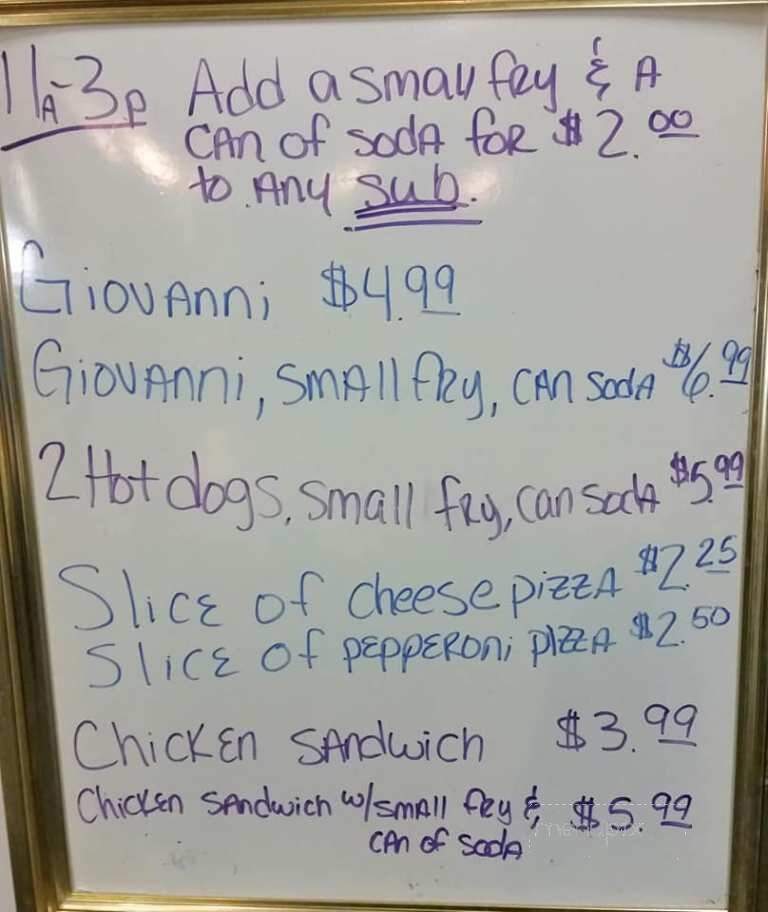 11A-3p Add a small fry & A
CAn of SodA for $2.00
to Any sub.
Giovanni $4.99
Giovanni, small fry, can soda $6.99
2 Hot dogs, small fry, can soda $5.99
Slice of cheese pizza $2.25
Slice of pepperoni pizza $2.50
Chicken Sandwich $3.99
Chicken Sandwich w/small fry & $5.99
can of soda
menupix